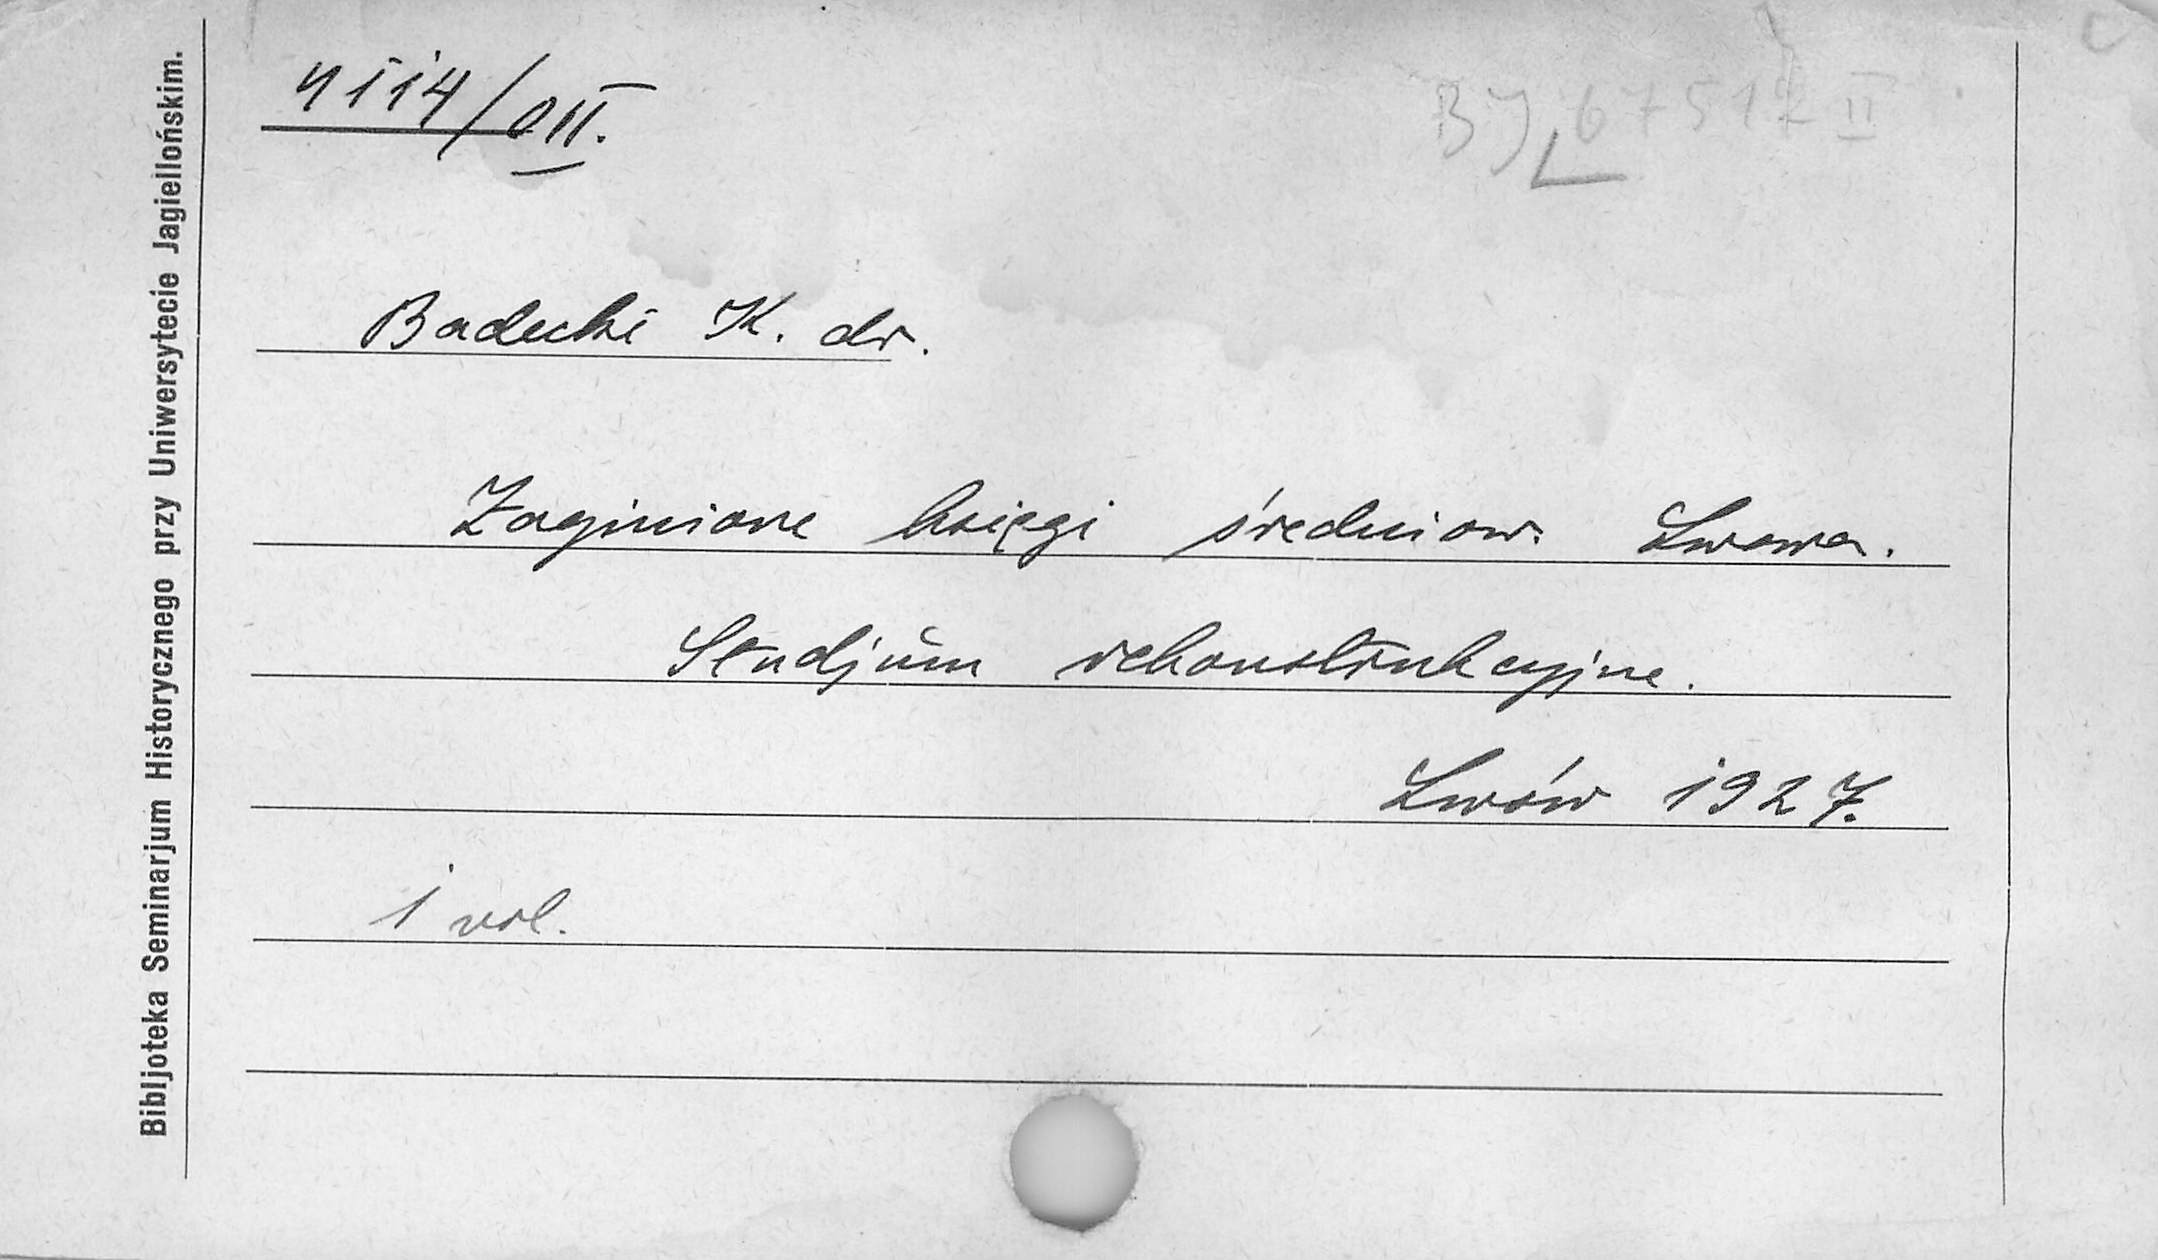 4114/DII.
BJ 67517 II
Badecki K. dr.
Zaginione księgi średniow. Lwowa.
Studjum rekonstrukcyjne.
Lwów 1927.
1 vol.
Bibljoteka Seminarjum Historycznego przy Uniwersytecie Jagiellońskim.